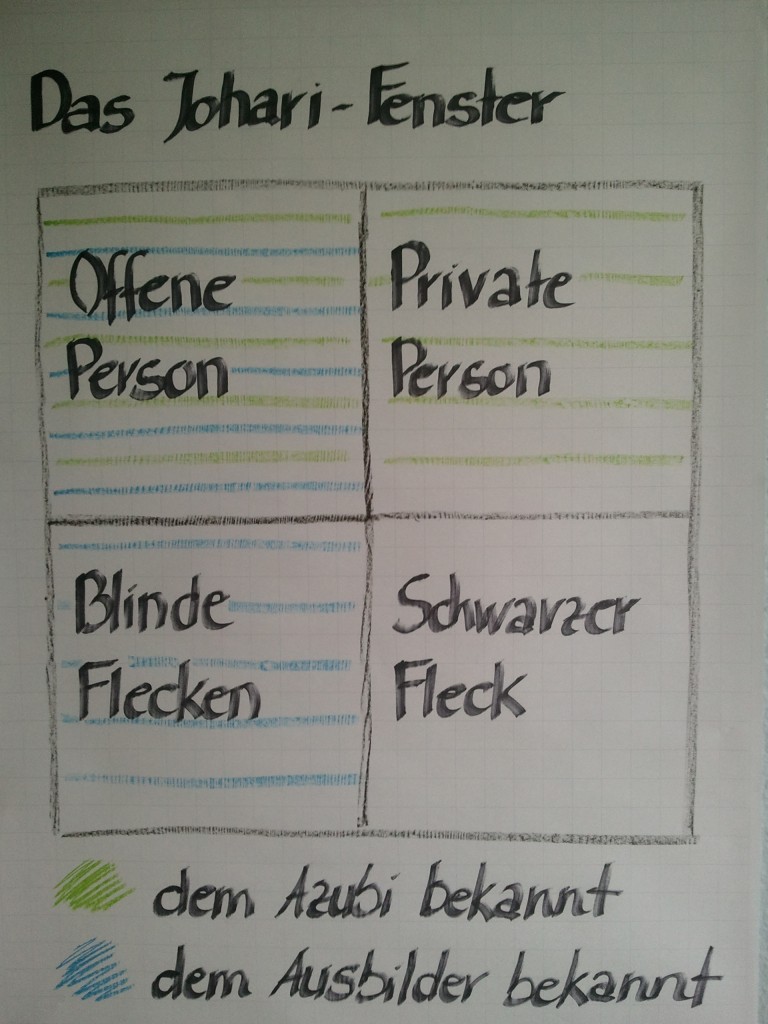 Das Johari-Fenster
Offene
Person
Private
Person
Blinde
Flecken
Schwarzer
Fleck
dem Azubi bekannt
dem Ausbilder bekannt